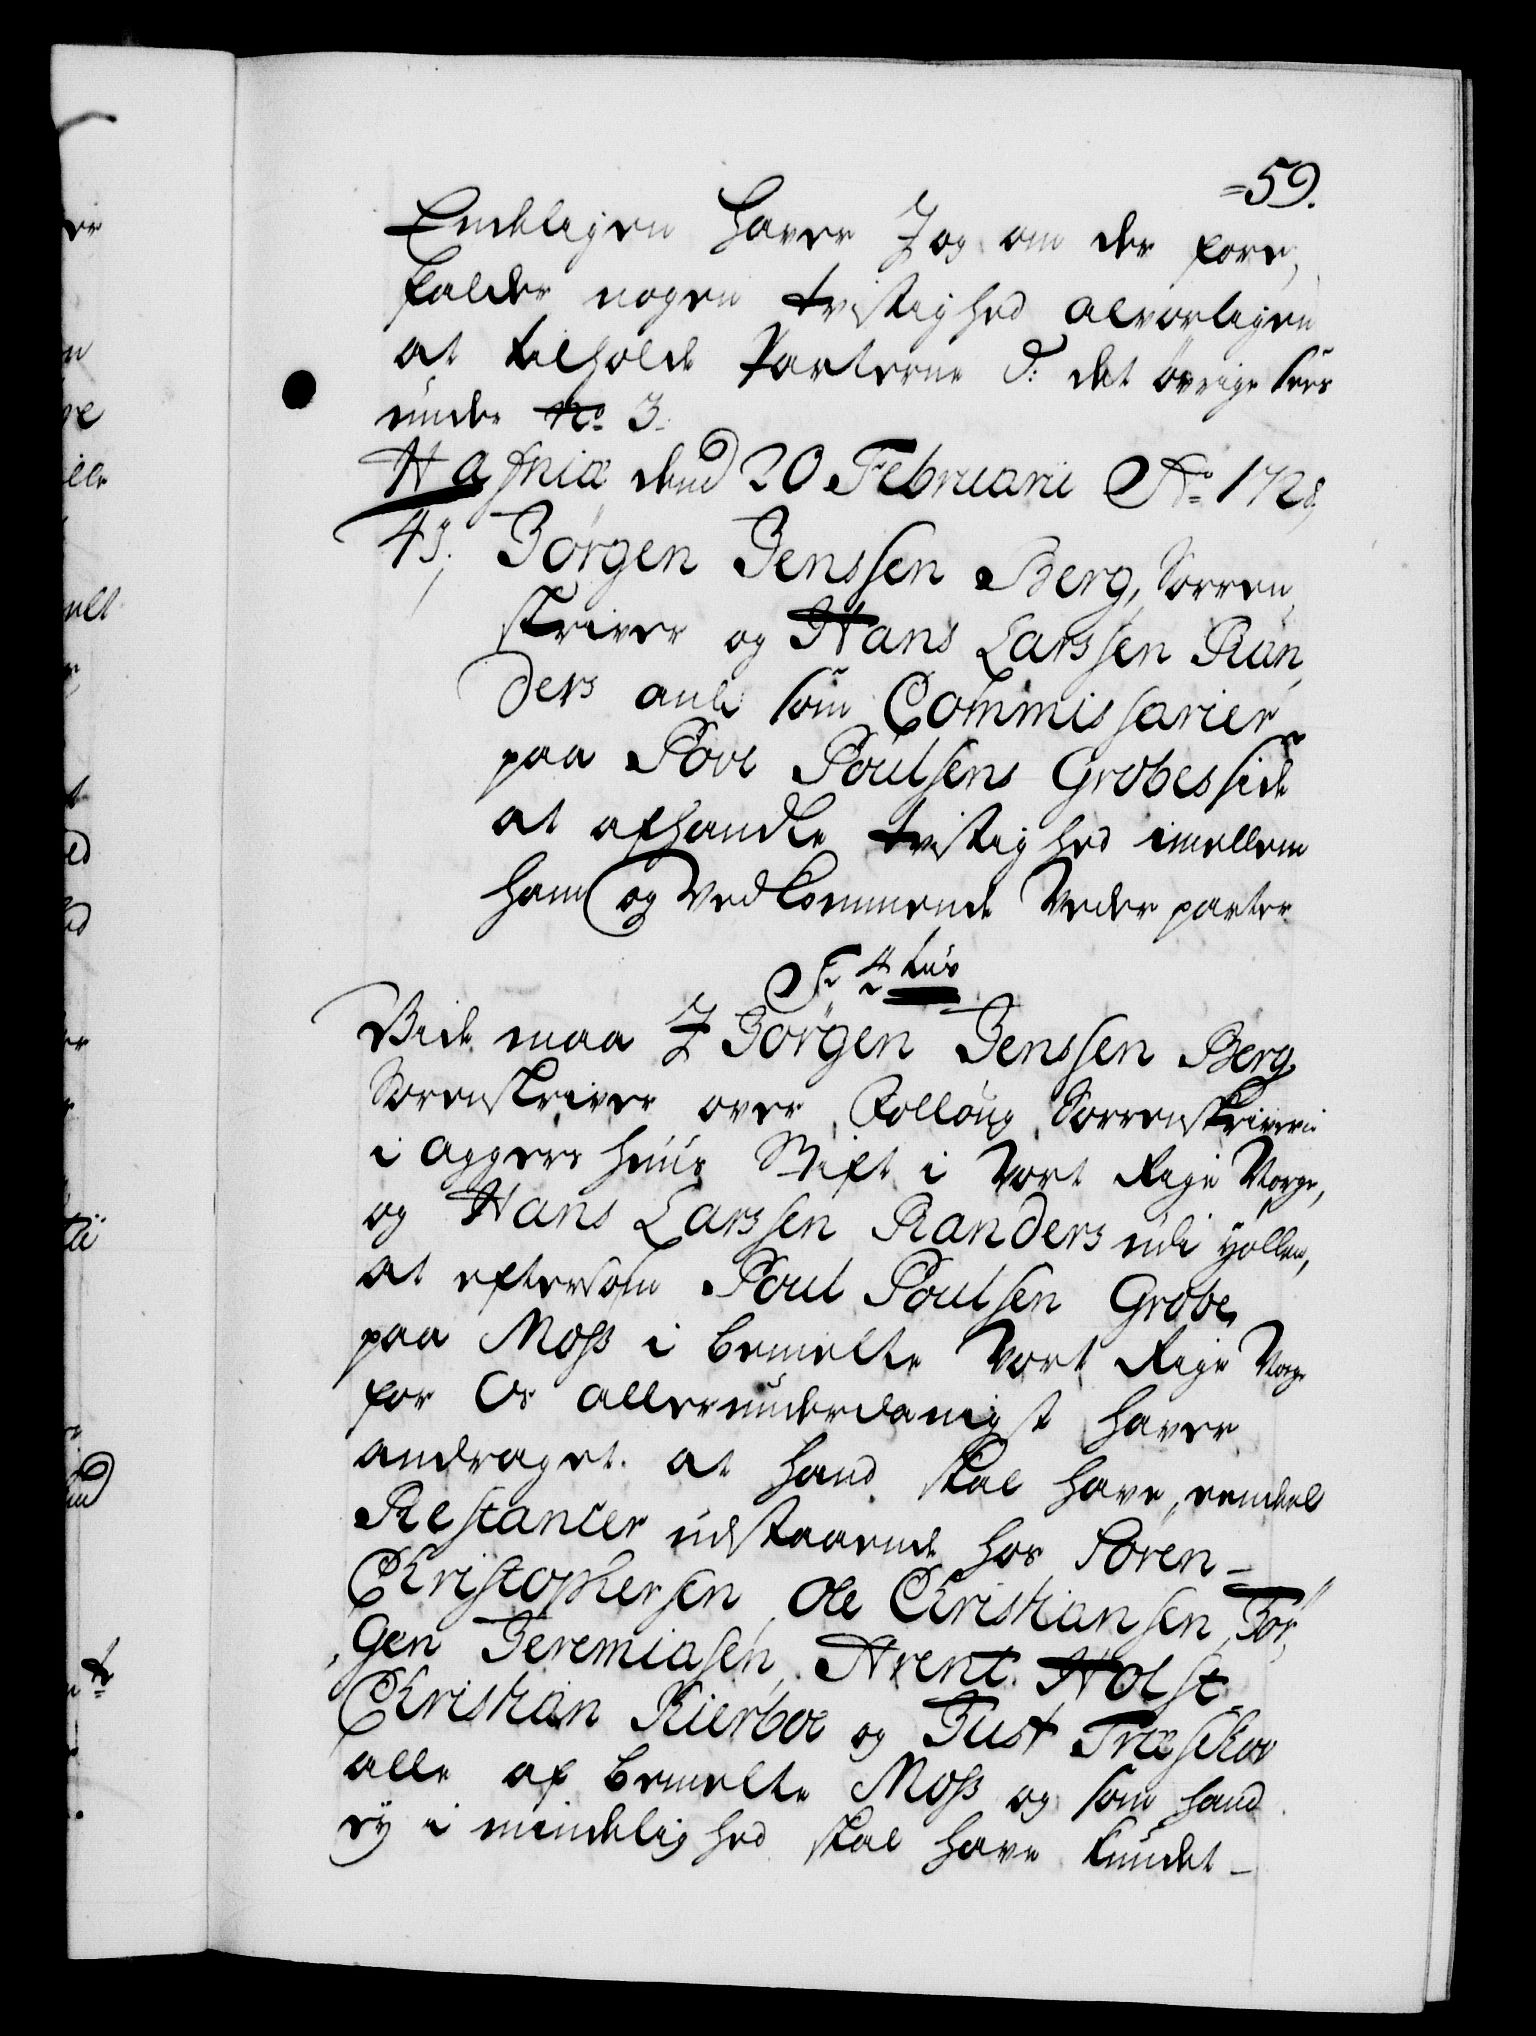 =59.
Endeligen haver I og om der fore,
falder nogen tvistighed alvorligen
at tilholde Parterne &: det øvrige sees
under No 3.
Hafniæ dend 20 Februarii Ao 1728,
43. Jørgen Jenssen Berg, Sorren,
skriver og Hans Larssen Ran,
ders anl: som Commissarier
paa Povl Poulsens Grobes side
at afhandle tvistighed imellem
ham og vedkommende Vederparter
F: 4tus
Vide maa I Jørgen Jenssen Berg
Sorenskriver over Folloug Sorrenskriveri
i Aggers huus Stift i Vort Rige Norge,
og Hans Larssen Randers udi Hollen,
at eftersom Poul Poulsen Grobe
paa Moss i bemelte Vort Rige Norge
for Os allerunderdanigst haver
andraget. at hand skal have, eendeel
Restancer udstaaende hos Søren-
Christophersen, Ole Christiansen, Jør,
gen Jeremiasen, Arent Holst
Christian Kierboe og Just Træschow
alle af bemelte Moss og som hand
ey i mindelighed skal have kundet-